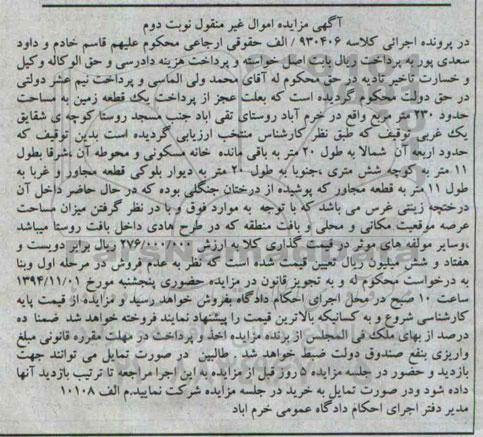 آگهی مزایده اموال غیر منقول نوبت دوم
در پرونده اجرائی کلاسه ۹۳۰۴۰۶ / الف حقوقی ارجاعی محکوم علیهم قاسم خادم و داود
سعدی پور به پرداخت ریال بابت اصل خواسته و پرداخت هزینه دادرسی و حق الوکاله وکیل
و خسارت تاخیر تادیه در حق محکوم له آقای محمد ولی الماسی و پرداخت نیم عشر دولتی
در حق دولت محکوم گردیده است که بعلت عجز از پرداخت یک قطعه زمین به مساحت
حدود ۲۳۰ متر مربع واقع در خرم آباد روستای تقی اباد جنب مسجد روستا کوچه ی شقایق
یک غربی توقیف که طبق نظر کارشناس منتخب ارزیابی گردیده است بدین توقیف که
حدود اربعه آن شمالا به طول ۲۰ متر به باقی مانده خانه مسکونی و محوطه آن ،شرقا بطول
۱۱ متر به کوچه شش متری ،جنوبا به طول ۲۰ متر به دیوار بلوکی قطعه مجاور و غربا به
طول ۱۱ متر به قطعه مجاور که پوشیده از درختان جنگلی بوده که در حال حاضر داخل آن
درختچه زینتی غرس می باشد که با توجه به موارد فوق و با در نظر گرفتن میزان مساحت
عرصه موقعیت مکانی و محلی و بافت منطقه که در طرح هادی داخل بافت روستا میباشد
،وسایر مولفه های موثر در قیمت گذاری کلا به ارزش ۲۷۶/۰۰۰/۰۰۰ ریال برابر دویست و
هفتاد و شش میلیون ریال تعیین قیمت شده است که نظر به عدم فروش در مرحله اول وبنا
به درخواست محکوم له و به تجویز قانون در مزایده حضوری پنجشنبه مورخ ۱۳۹۴/۱۱/۰۱
ساعت ۱۰ صبح در محل اجرای احکام دادگاه بفروش خواهد رسید و مزایده از قیمت پایه
کارشناسی شروع و به کسانیکه بالاترین قیمت را پیشنهاد نمایند فروخته خواهد شد ضمنا ده
درصد از بهای ملک فی المجلس از برنده مزایده اخذ و پرداخت در مهلت مقرره قانونی مبلغ
واریزی بنفع صندوق دولت ضبط خواهد شد . طالبین در صورت تمایل می توانند جهت
بازدید و حضور در جلسه مزایده ۵ روز قبل از مزایده به این اجرا مراجعه تا ترتیب بازدید آنها
داده شود ودر صورت تمایل به خرید در جلسه مزایده شرکت نمایید.م الف ۱۰۱۰۸
مدیر دفتر اجرای احکام دادگاه عمومی خرم اباد